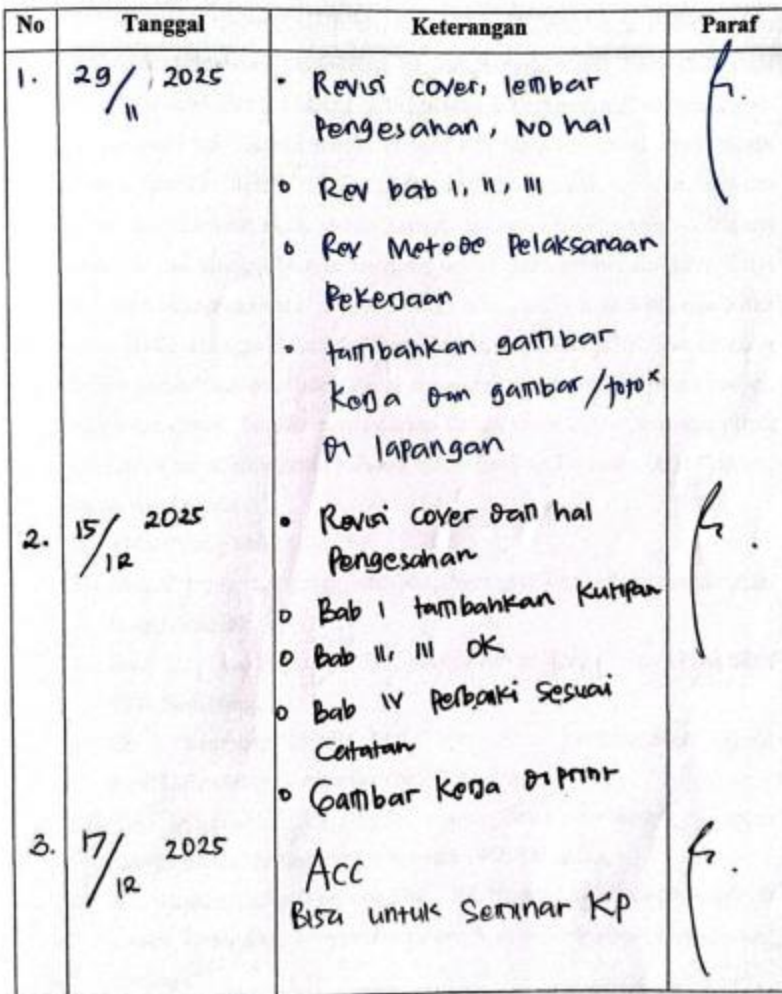 No Tanggal Keterangan Paraf
1. 29/11 2025 • Revisi cover, lembar
Pengesahan, No hal
• Rev bab I, II, III
• Rev Metode Pelaksanaan
Pekerjaan
• tambahkan gambar
Kerja dan gambar/foto²
di lapangan
2. 15/12 2025 • Revisi cover dan hal
Pengesahan
• Bab I tambahkan kutipan
• Bab II, III OK
• Bab IV perbaiki sesuai
Catatan
• Gambar Kerja diprint
3. 17/12 2025 ACC
Bisa untuk Seminar KP